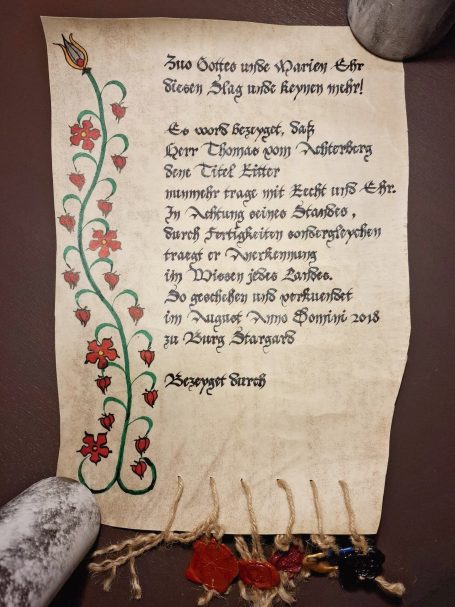 Zuo Gottes unde Marien Ehr
diesen Slag unde keynen mehr!
Es word bezeyget, daß
Herr Thomas vom Achterberg
deme Titel Ritter
nunmehr trage mit Recht und Ehr.
In Achtung seines Standes,
durch Fertigkeiten sondergleychen
traegt er Anerkennung
im Wissen jedes Landes.
So geschehen und verkuendet
im August Anno Domini 2018
zu Burg Stargard
Bezeyget durch